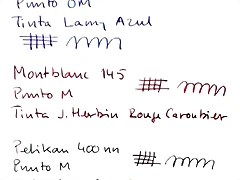 Punto OM
Tinta Lamy Azul
Montblanc 145
Punto M
Tinta J. Herbin Rouge Caroubier
Pelikan 400 nn
Punto M